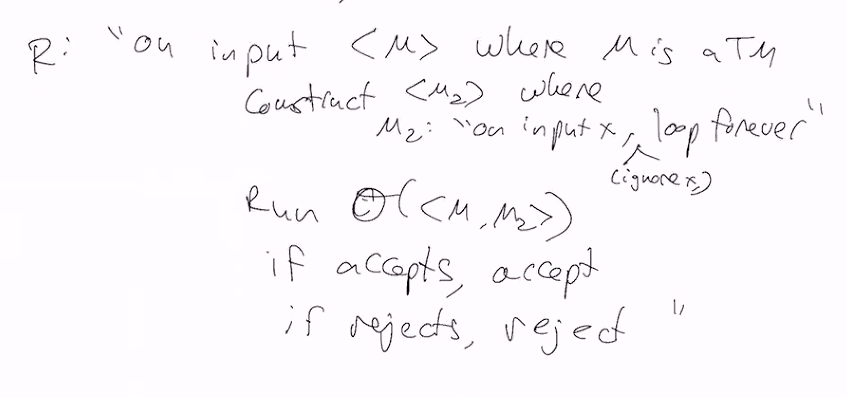 R: "on input <M> where M is a TM
Construct <M₂> where
M₂: "on input x, loop forever"
(ignore x,)
Run (<M, M₂>)
if accepts, accept
if rejects, reject "